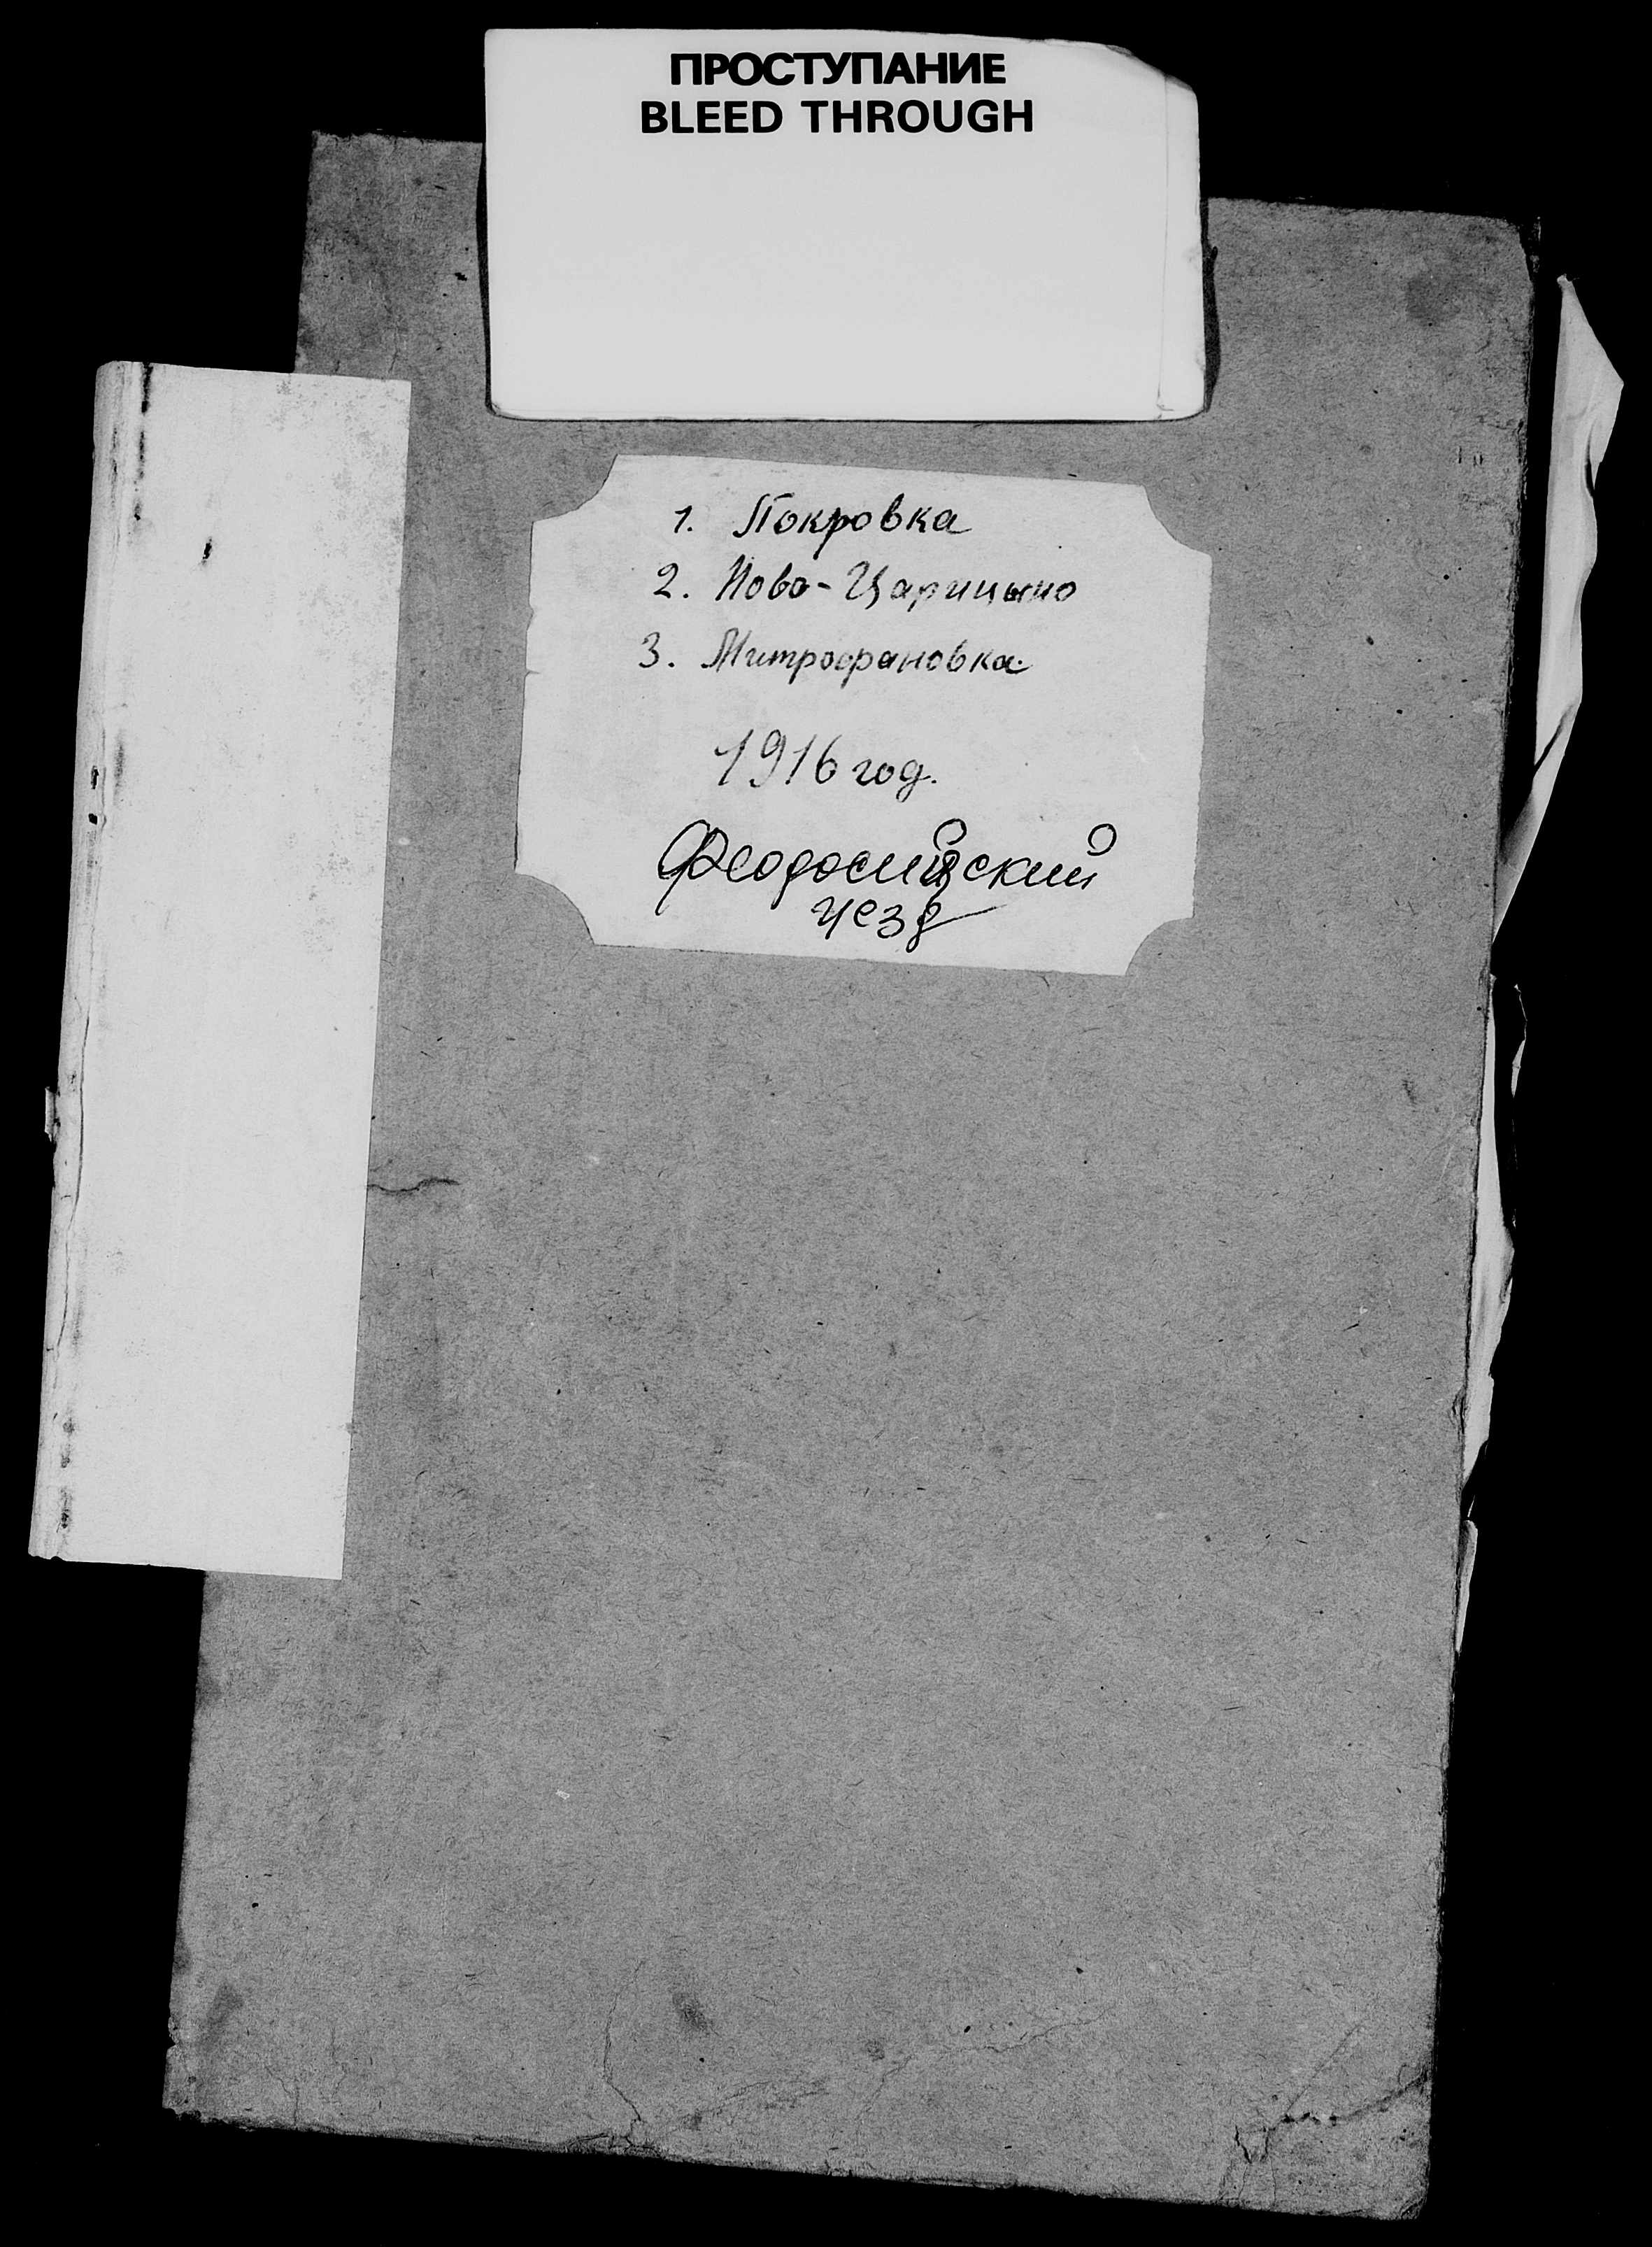 ПРОСТУПАНИЕ
BLEED THROUGH
1. Покровка
2. Ново-Царицыно
3. Митрофановка
1916 год.
Феодосийский
уезд